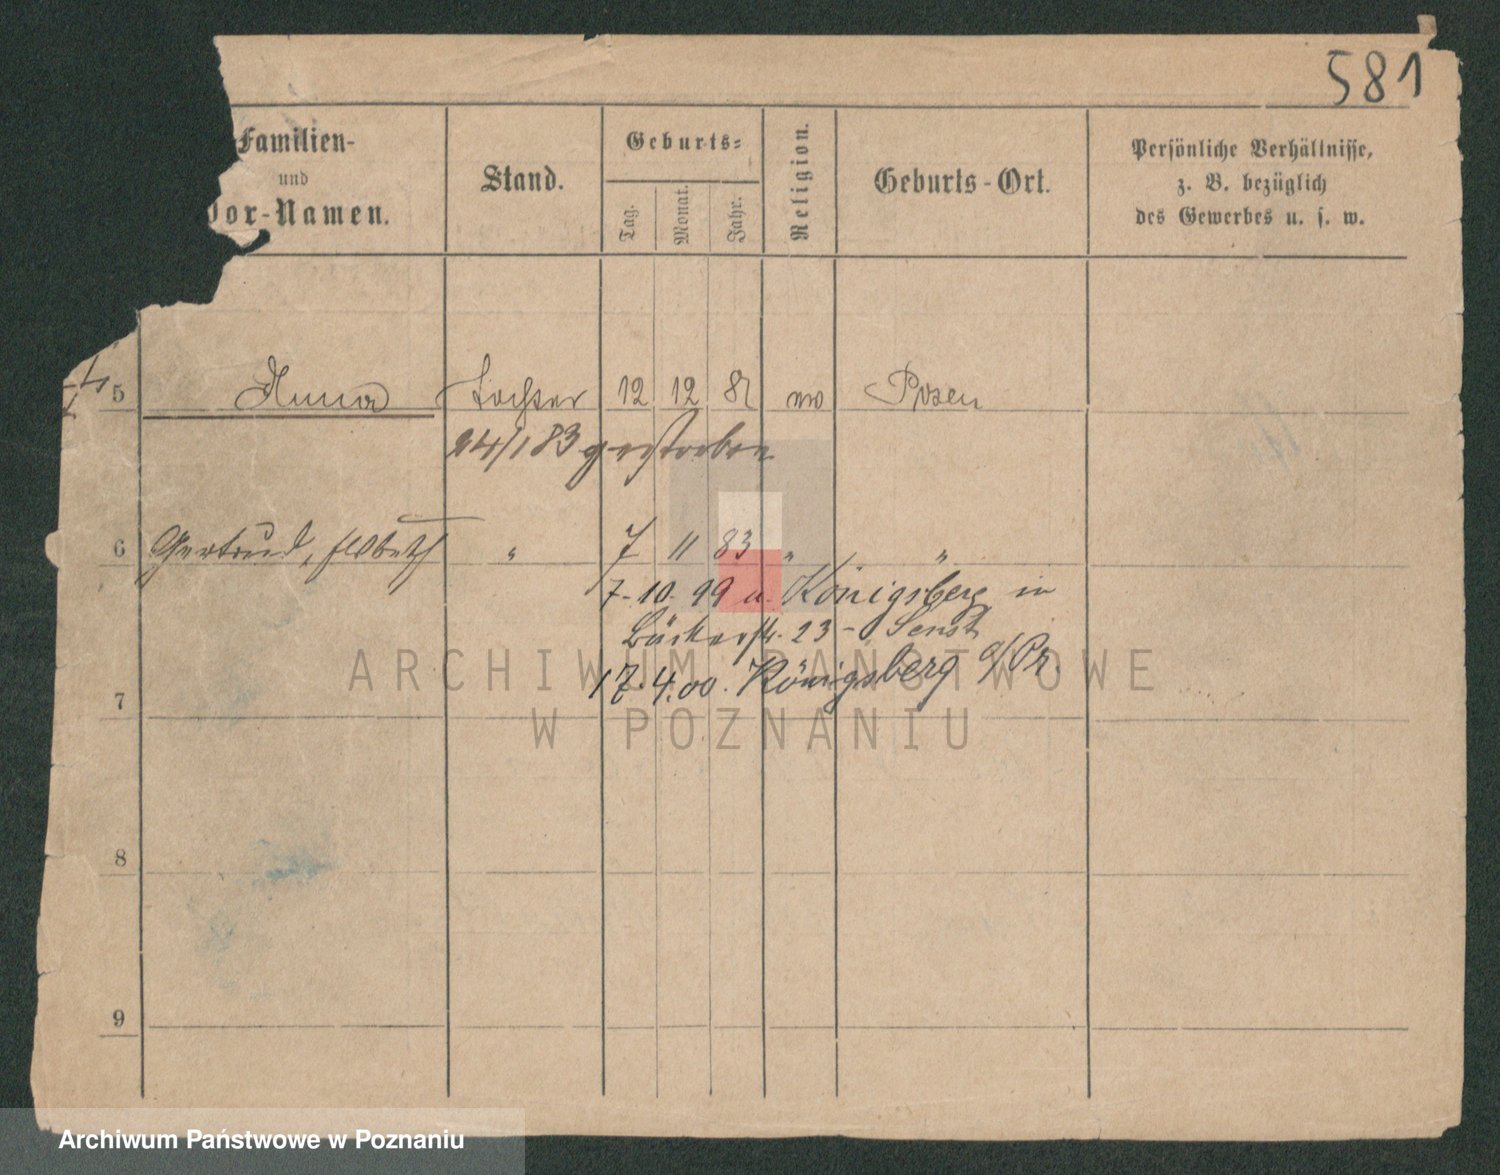 581
Familien-
und
Vor-Namen.
Stand.
Geburts-
Tag.
Monat.
Jahr.
Religion.
Geburts-Ort.
Persönliche Verhältnisse,
z. B. bezüglich
des Gewerbes u. s. w.
5 Anna Tochter 12 12 81 Posen
24/1 83 gestorben
6 Gertrud, " 7 11 83 " "
7-10. 99 n. Königsberg in
Bäckerstr. 23-
17.4.00. Königsberg o/Pr.
7
8
9
ARCHIWUM PAŃSTWOWE
W POZNANIU
Archiwum Państwowe w Poznaniu